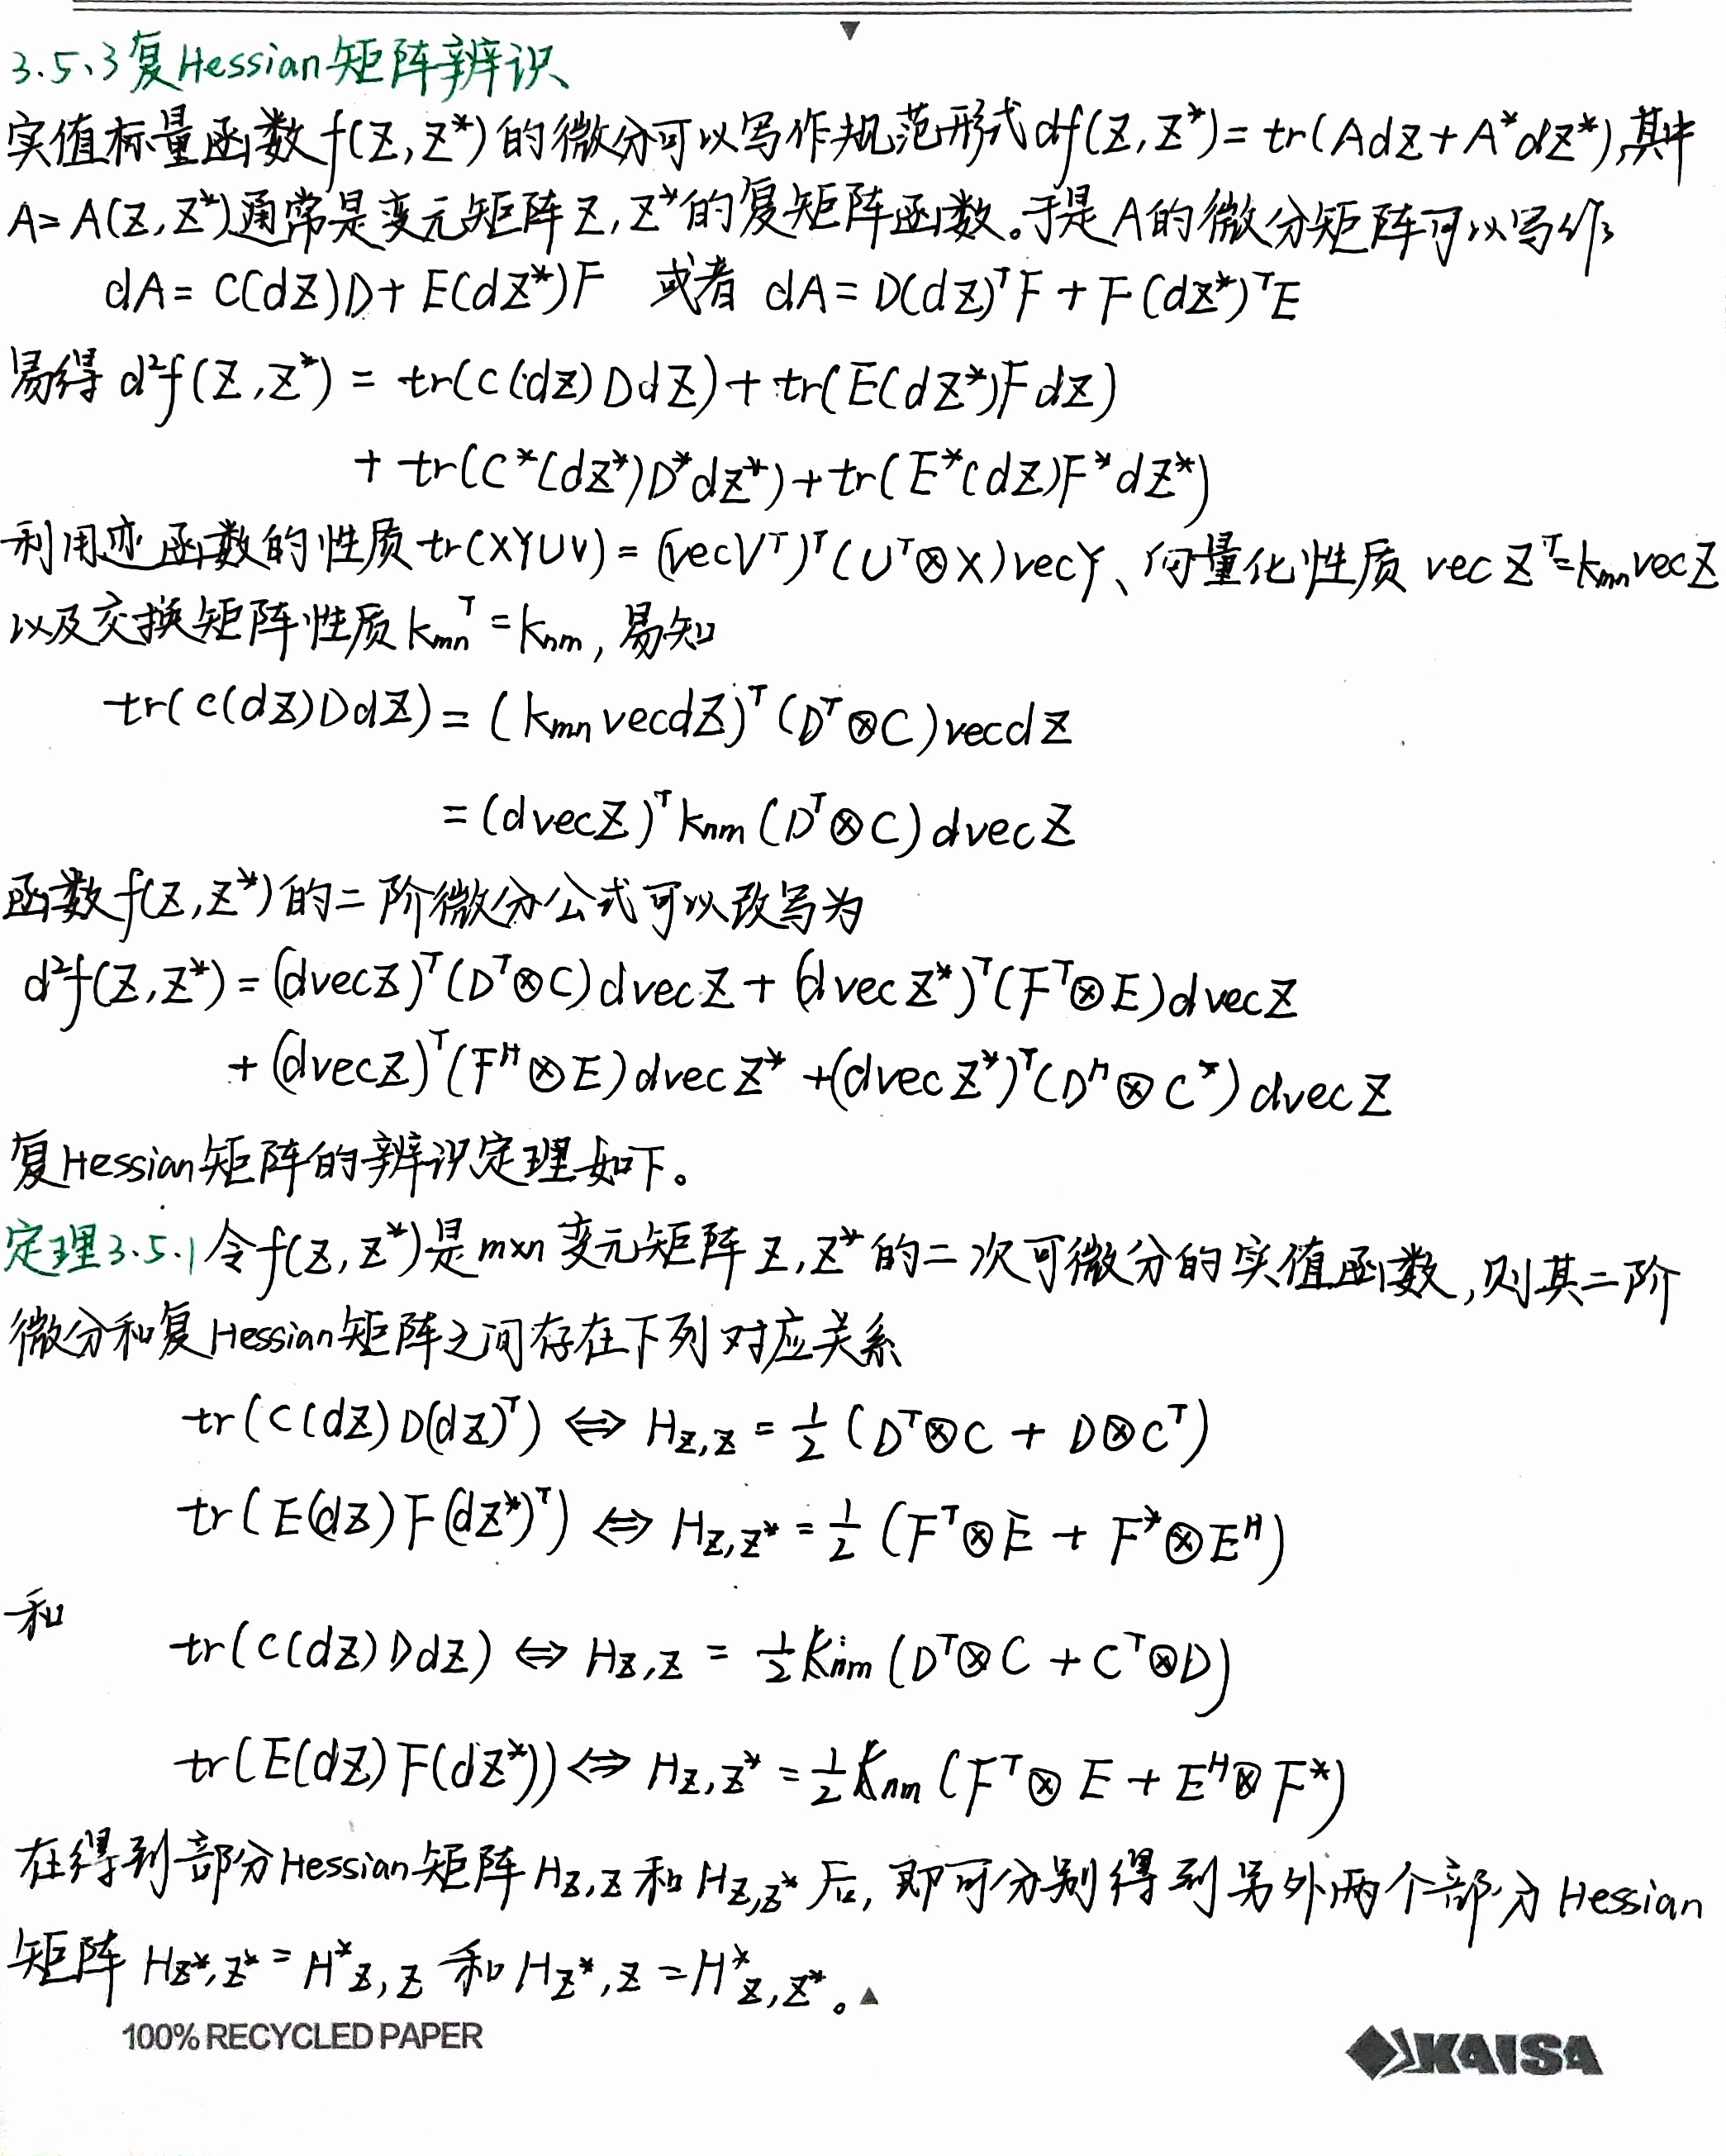 3.5.3复Hessian矩阵辨识
实值标量函数f(Z,Z*)的微分可以写作规范形式df(Z,Z*)=tr(AdZ+A*dZ*),其中
A=A(Z,Z*)通常是变元矩阵Z,Z*的复矩阵函数。于是A的微分矩阵可以写作
dA=C(dZ)D+E(dZ*)F 或者 dA=D(dZ)ᵀF+F(dZ*)ᵀE
易得 d²f(Z,Z*) = tr(C(dZ)DdZ)+tr(E(dZ*)FdZ)
+tr(C*(dZ*)D*dZ*)+tr(E*(dZ)F*dZ*)
利用迹函数的性质tr(XYUV)=(vecVᵀ)ᵀ(Uᵀ⊗X)vecY、向量化性质 vecZᵀ=kₘₙvecZ
以及交换矩阵性质kₘₙᵀ=kₙₘ,易知
tr(C(dZ)DdZ)=(kₘₙvecdZ)ᵀ(Dᵀ⊗C)vecdZ
=(dvecZ)ᵀkₙₘ(Dᵀ⊗C)dvecZ
函数f(Z,Z*)的二阶微分公式可以改写为
d²f(Z,Z*)=(dvecZ)ᵀ(Dᵀ⊗C)dvecZ+(dvecZ*)ᵀ(Fᵀ⊗E)dvecZ
+(dvecZ)ᵀ(Fᴴ⊗E)dvecZ*+(dvecZ*)ᵀ(Dᴴ⊗C*)dvecZ
复Hessian矩阵的辨识定理如下。
定理3.5.1 令f(Z,Z*)是m×n变元矩阵Z,Z*的二次可微分的实值函数,则其二阶
微分和复Hessian矩阵之间存在下列对应关系
tr(C(dZ)D(dZ)ᵀ) ⇔ H_{Z,Z} = ½(Dᵀ⊗C + D⊗Cᵀ)
tr(E(dZ)F(dZ*)ᵀ) ⇔ H_{Z,Z*} = ½(Fᵀ⊗E + F*⊗Eᴴ)
和
tr(C(dZ)DdZ) ⇔ H_{Z,Z} = ½Kₙₘ(Dᵀ⊗C + Cᵀ⊗D)
tr(E(dZ)F(dZ*)) ⇔ H_{Z,Z*} = ½Kₙₘ(Fᵀ⊗E + Eᴴ⊗F*)
在得到部分Hessian矩阵H_{Z,Z}和H_{Z,Z*}后,即可分别得到另外两个部分Hessian
矩阵 H_{Z*,Z*}=H*_{Z,Z} 和H_{Z*,Z}=H*_{Z,Z*}。
100% RECYCLED PAPER
KAISA